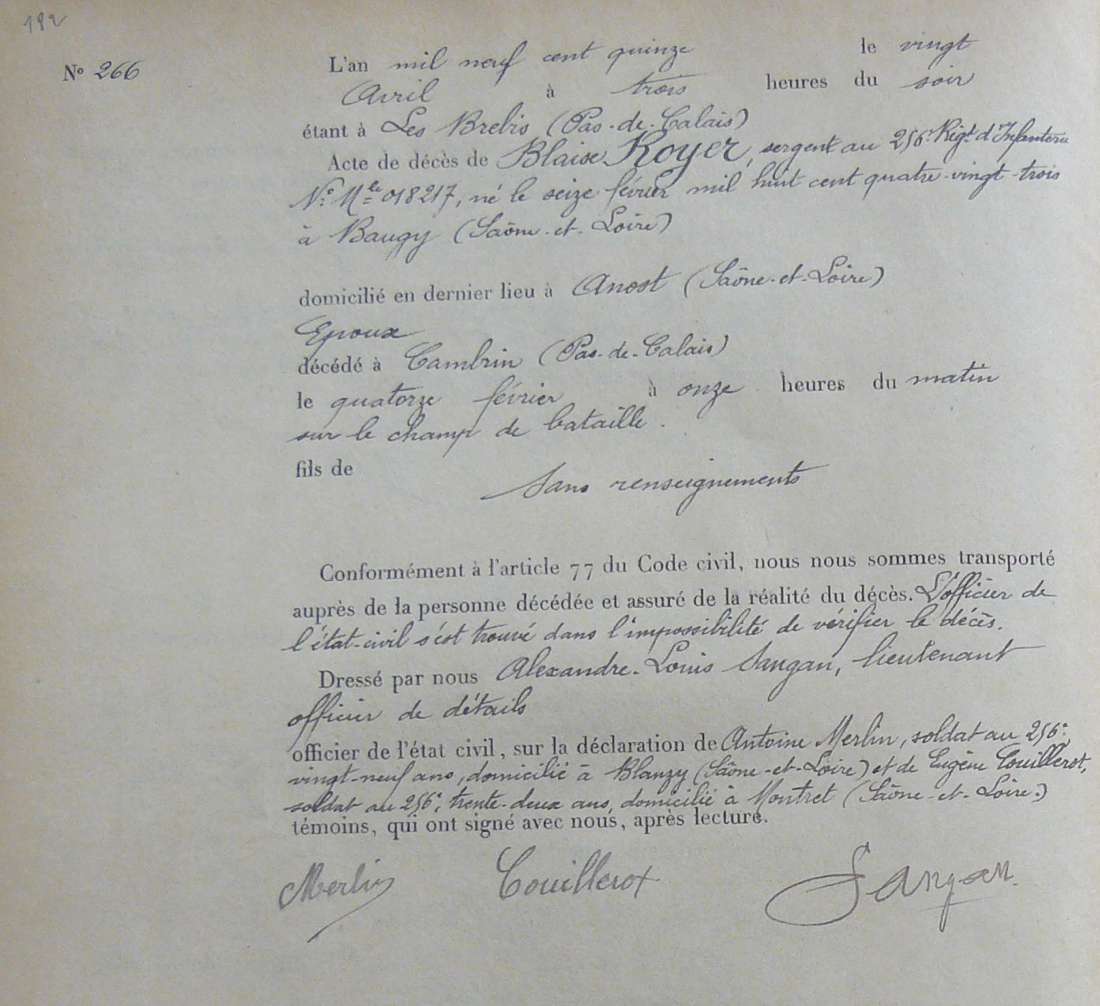 192
N° 266
L'an mil neuf cent quinze le vingt
Avril à trois heures du soir
étant à Les Brebis (Pas-de-Calais)
Acte de décès de Blaise Royer, sergent au 256e Rigt d'Infanterie
N° Mle 018217, né le seize février mil huit cent quatre-vingt-trois
à Baugy (Saône-et-Loire)
domicilié en dernier lieu à Anost (Saône-et-Loire)
Epoux
décédé à Cambrin (Pas-de-Calais)
le quatorze février à onze heures du matin
sur le champ de bataille.
fils de
Sans renseignements
Conformément à l'article 77 du Code civil, nous nous sommes transporté
auprès de la personne décédée et assuré de la réalité du décès. L'officier de
l'état-civil s'est trouvé dans l'impossibilité de vérifier le décès.
Dressé par nous Alexandre-Louis Sangan, lieutenant
officier de détails
officier de l'état civil, sur la déclaration de Antoine Merlin, soldat au 256e,
vingt-neuf ans, domicilié à Blanzy (Saône-et-Loire) et de Eugène Couillerot,
soldat au 256e, trente-deux ans, domicilié à Montret (Saône-et-Loire.)
témoins, qui ont signé avec nous, après lecture.
Merlin Couillerot Sangan